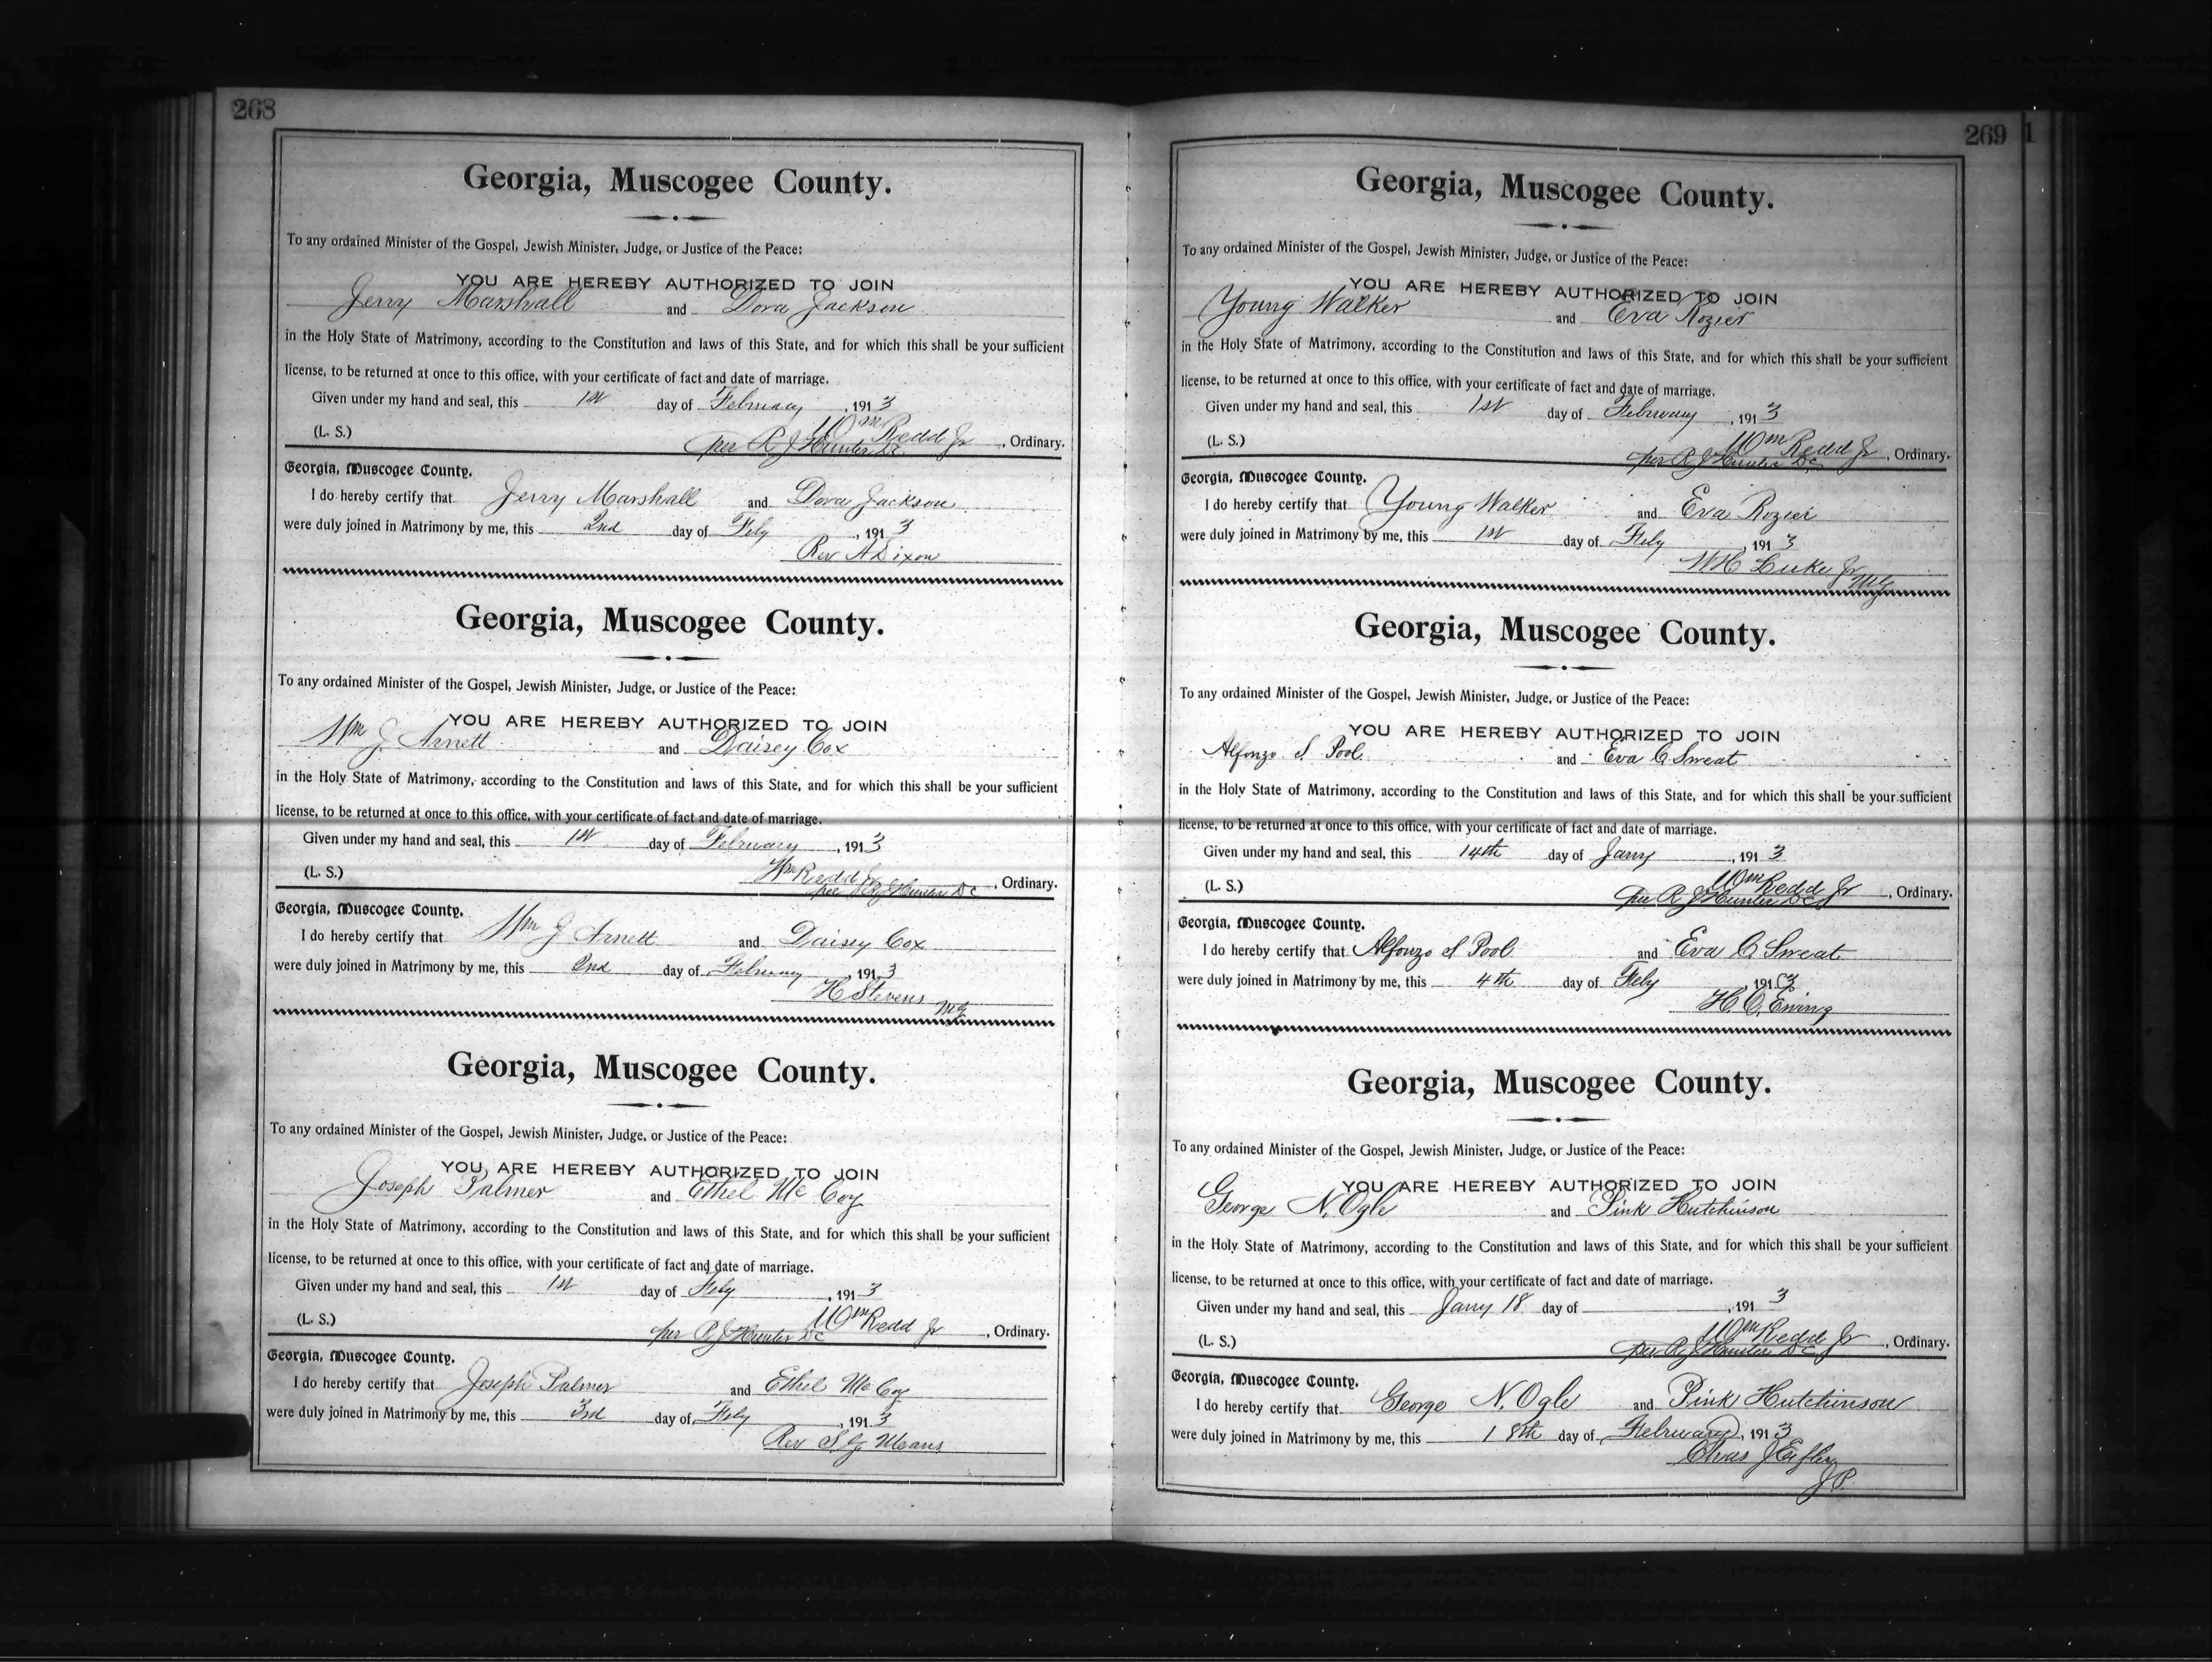 268
Georgia, Muscogee County.
To any ordained Minister of the Gospel, Jewish Minister, Judge, or Justice of the Peace:
YOU ARE HEREBY AUTHORIZED TO JOIN
Jerry Marshall and Dora Jackson
in the Holy State of Matrimony, according to the Constitution and laws of this State, and for which this shall be your sufficient
license, to be returned at once to this office, with your certificate of fact and date of marriage.
Given under my hand and seal, this 1st day of February, 1913
(L. S.) Wm Redd Jr, Ordinary.
per R J Hunter DC
Georgia, Muscogee County.
I do hereby certify that Jerry Marshall and Dora Jackson
were duly joined in Matrimony by me, this 2nd day of Feby, 1913
Rev A Dixon
Georgia, Muscogee County.
To any ordained Minister of the Gospel, Jewish Minister, Judge, or Justice of the Peace:
YOU ARE HEREBY AUTHORIZED TO JOIN
Wm J. Arnett and Daisey Cox
in the Holy State of Matrimony, according to the Constitution and laws of this State, and for which this shall be your sufficient
license, to be returned at once to this office, with your certificate of fact and date of marriage.
Given under my hand and seal, this 1st day of February, 1913
(L. S.) Wm Redd Jr, Ordinary.
per R J Hunter DC
Georgia, Muscogee County.
I do hereby certify that Wm J Arnett and Daisey Cox
were duly joined in Matrimony by me, this 2nd day of February, 1913
H Stevens
MG
Georgia, Muscogee County.
To any ordained Minister of the Gospel, Jewish Minister, Judge, or Justice of the Peace:
YOU ARE HEREBY AUTHORIZED TO JOIN
Joseph Palmer and Ethel Mc Coy
in the Holy State of Matrimony, according to the Constitution and laws of this State, and for which this shall be your sufficient
license, to be returned at once to this office, with your certificate of fact and date of marriage.
Given under my hand and seal, this 1st day of Feby, 1913
(L. S.) Wm Redd Jr, Ordinary.
per R J Hunter DC
Georgia, Muscogee County.
I do hereby certify that Joseph Palmer and Ethel Mc Coy
were duly joined in Matrimony by me, this 3rd day of Feby, 1913
Rev S. G. Means
269 1
Georgia, Muscogee County.
To any ordained Minister of the Gospel, Jewish Minister, Judge, or Justice of the Peace:
YOU ARE HEREBY AUTHORIZED TO JOIN
Young Walker and Eva Rozier
in the Holy State of Matrimony, according to the Constitution and laws of this State, and for which this shall be your sufficient
license, to be returned at once to this office, with your certificate of fact and date of marriage.
Given under my hand and seal, this 1st day of February, 1913
(L. S.) Wm Redd Jr, Ordinary.
per R J Hunter DC
Georgia, Muscogee County.
I do hereby certify that Young Walker and Eva Rozier
were duly joined in Matrimony by me, this 1st day of Feby, 1913
WH Luke Jr
MG
Georgia, Muscogee County.
To any ordained Minister of the Gospel, Jewish Minister, Judge, or Justice of the Peace:
YOU ARE HEREBY AUTHORIZED TO JOIN
Alfonzo S Pool and Eva C Sweat
in the Holy State of Matrimony, according to the Constitution and laws of this State, and for which this shall be your sufficient
license, to be returned at once to this office, with your certificate of fact and date of marriage.
Given under my hand and seal, this 14th day of Jany, 1913
(L. S.) Wm Redd Jr, Ordinary.
per R J Hunter DC
Georgia, Muscogee County.
I do hereby certify that Alfonzo S Pool and Eva C Sweat
were duly joined in Matrimony by me, this 4th day of Feby, 1913
H. O. Ewing
Georgia, Muscogee County.
To any ordained Minister of the Gospel, Jewish Minister, Judge, or Justice of the Peace:
YOU ARE HEREBY AUTHORIZED TO JOIN
George N. Ogle and Pink Hutchinson
in the Holy State of Matrimony, according to the Constitution and laws of this State, and for which this shall be your sufficient
license, to be returned at once to this office, with your certificate of fact and date of marriage.
Given under my hand and seal, this Jany 18 day of , 1913
(L. S.) Wm Redd Jr, Ordinary.
per R J Hunter DC
Georgia, Muscogee County.
I do hereby certify that George N. Ogle and Pink Hutchinson
were duly joined in Matrimony by me, this 18th day of February, 1913
Chas J
J.P.